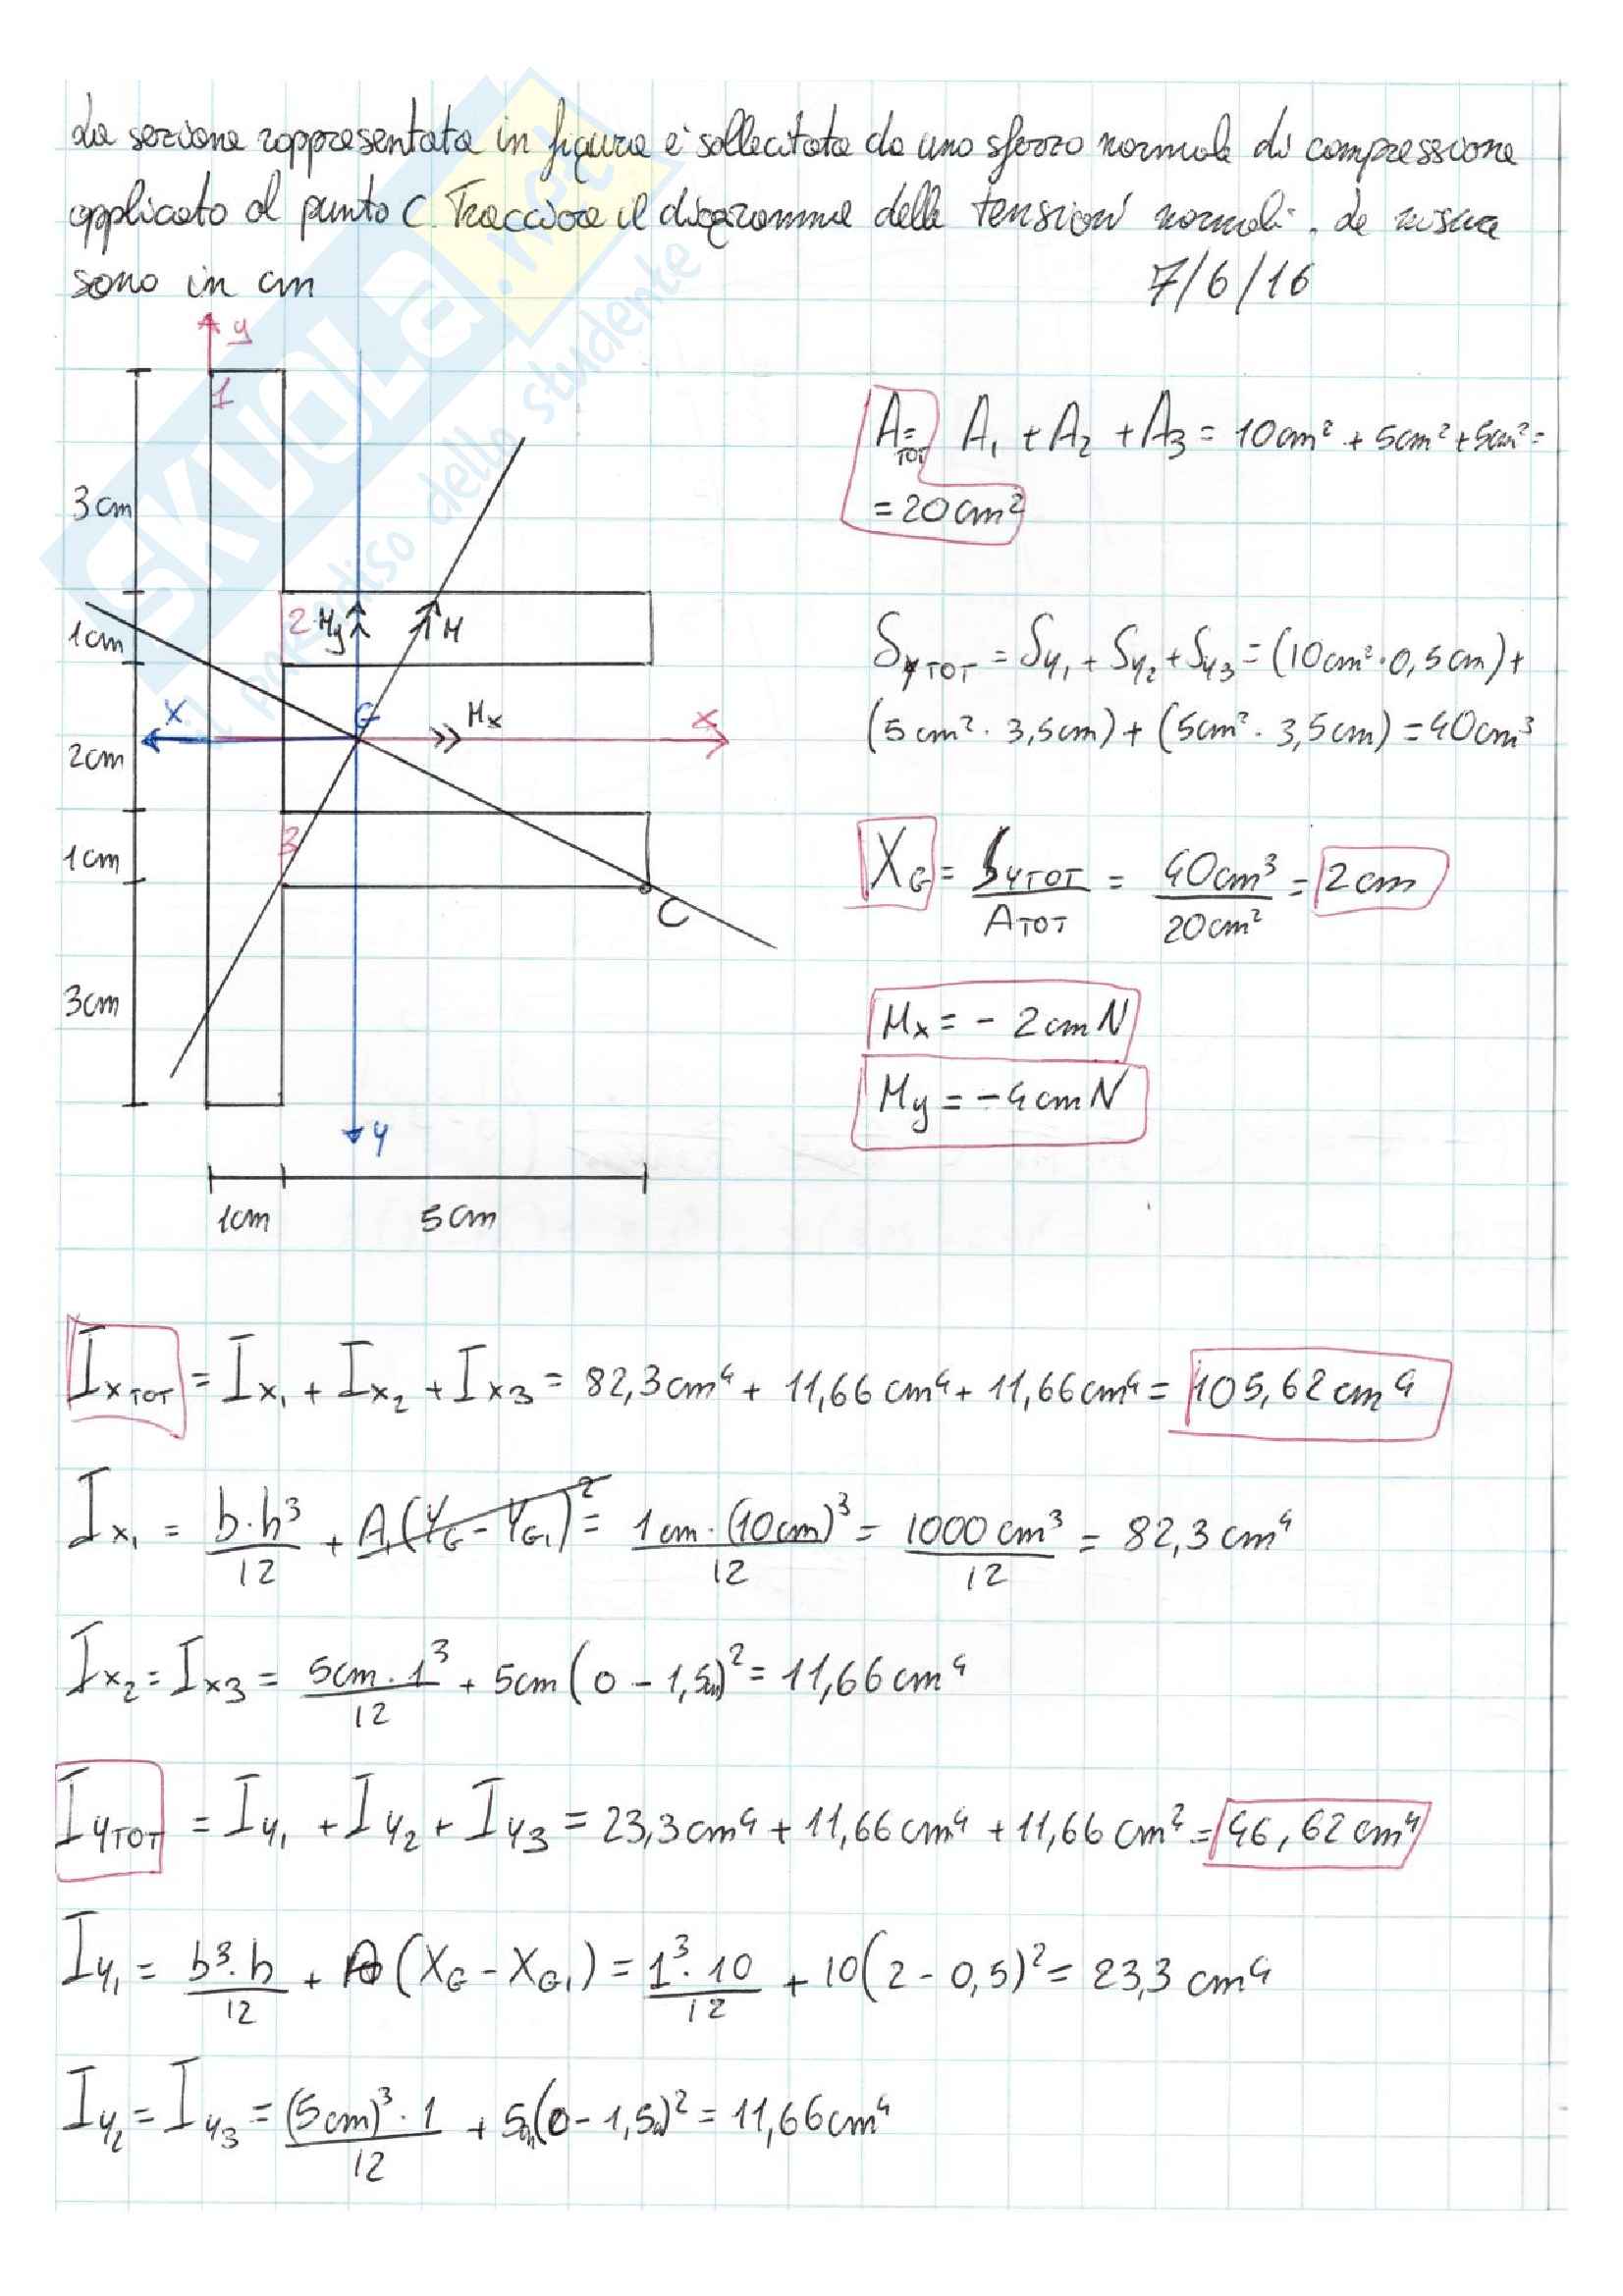 La sezione rappresentata in figura è sollecitata da uno sforzo normale di compressione
applicato al punto C. Tracciare il diagramma delle tensioni normali. Le misure
sono in cm
7/6/16
SKUOLA.net
il paradiso dello studente
y
1
3cm
1cm
2cm
1cm
3cm
2 My M
X G Mx x
3
C
y
1cm 5cm
A TOT = A1 + A2 + A3 = 10cm² + 5cm² + 5cm² =
= 20cm²
Sy TOT = Sy1 + Sy2 + Sy3 = (10cm² · 0,5cm) +
(5cm² · 3,5cm) + (5cm² · 3,5cm) = 40cm³
XG = Sy TOT / A TOT = 40cm³ / 20cm² = 2cm
Mx = - 2cmN
My = - 4cmN
Ix TOT = Ix1 + Ix2 + Ix3 = 82,3cm⁴ + 11,66cm⁴ + 11,66cm⁴ = 105,62cm⁴
Ix1 = b·h³/12 + A1(YG - YG1)² = 1cm·(10cm)³/12 = 1000cm³/12 = 82,3cm⁴
Ix2 = Ix3 = 5cm·1³/12 + 5cm(0 - 1,5cm)² = 11,66cm⁴
Iy TOT = Iy1 + Iy2 + Iy3 = 23,3cm⁴ + 11,66cm⁴ + 11,66cm² = 46,62cm⁴
Iy1 = b³·h/12 + A(XG - XG1) = 1³·10/12 + 10(2 - 0,5)² = 23,3cm⁴
Iy2 = Iy3 = (5cm)³·1/12 + 5(0 - 1,5)² = 11,66cm⁴